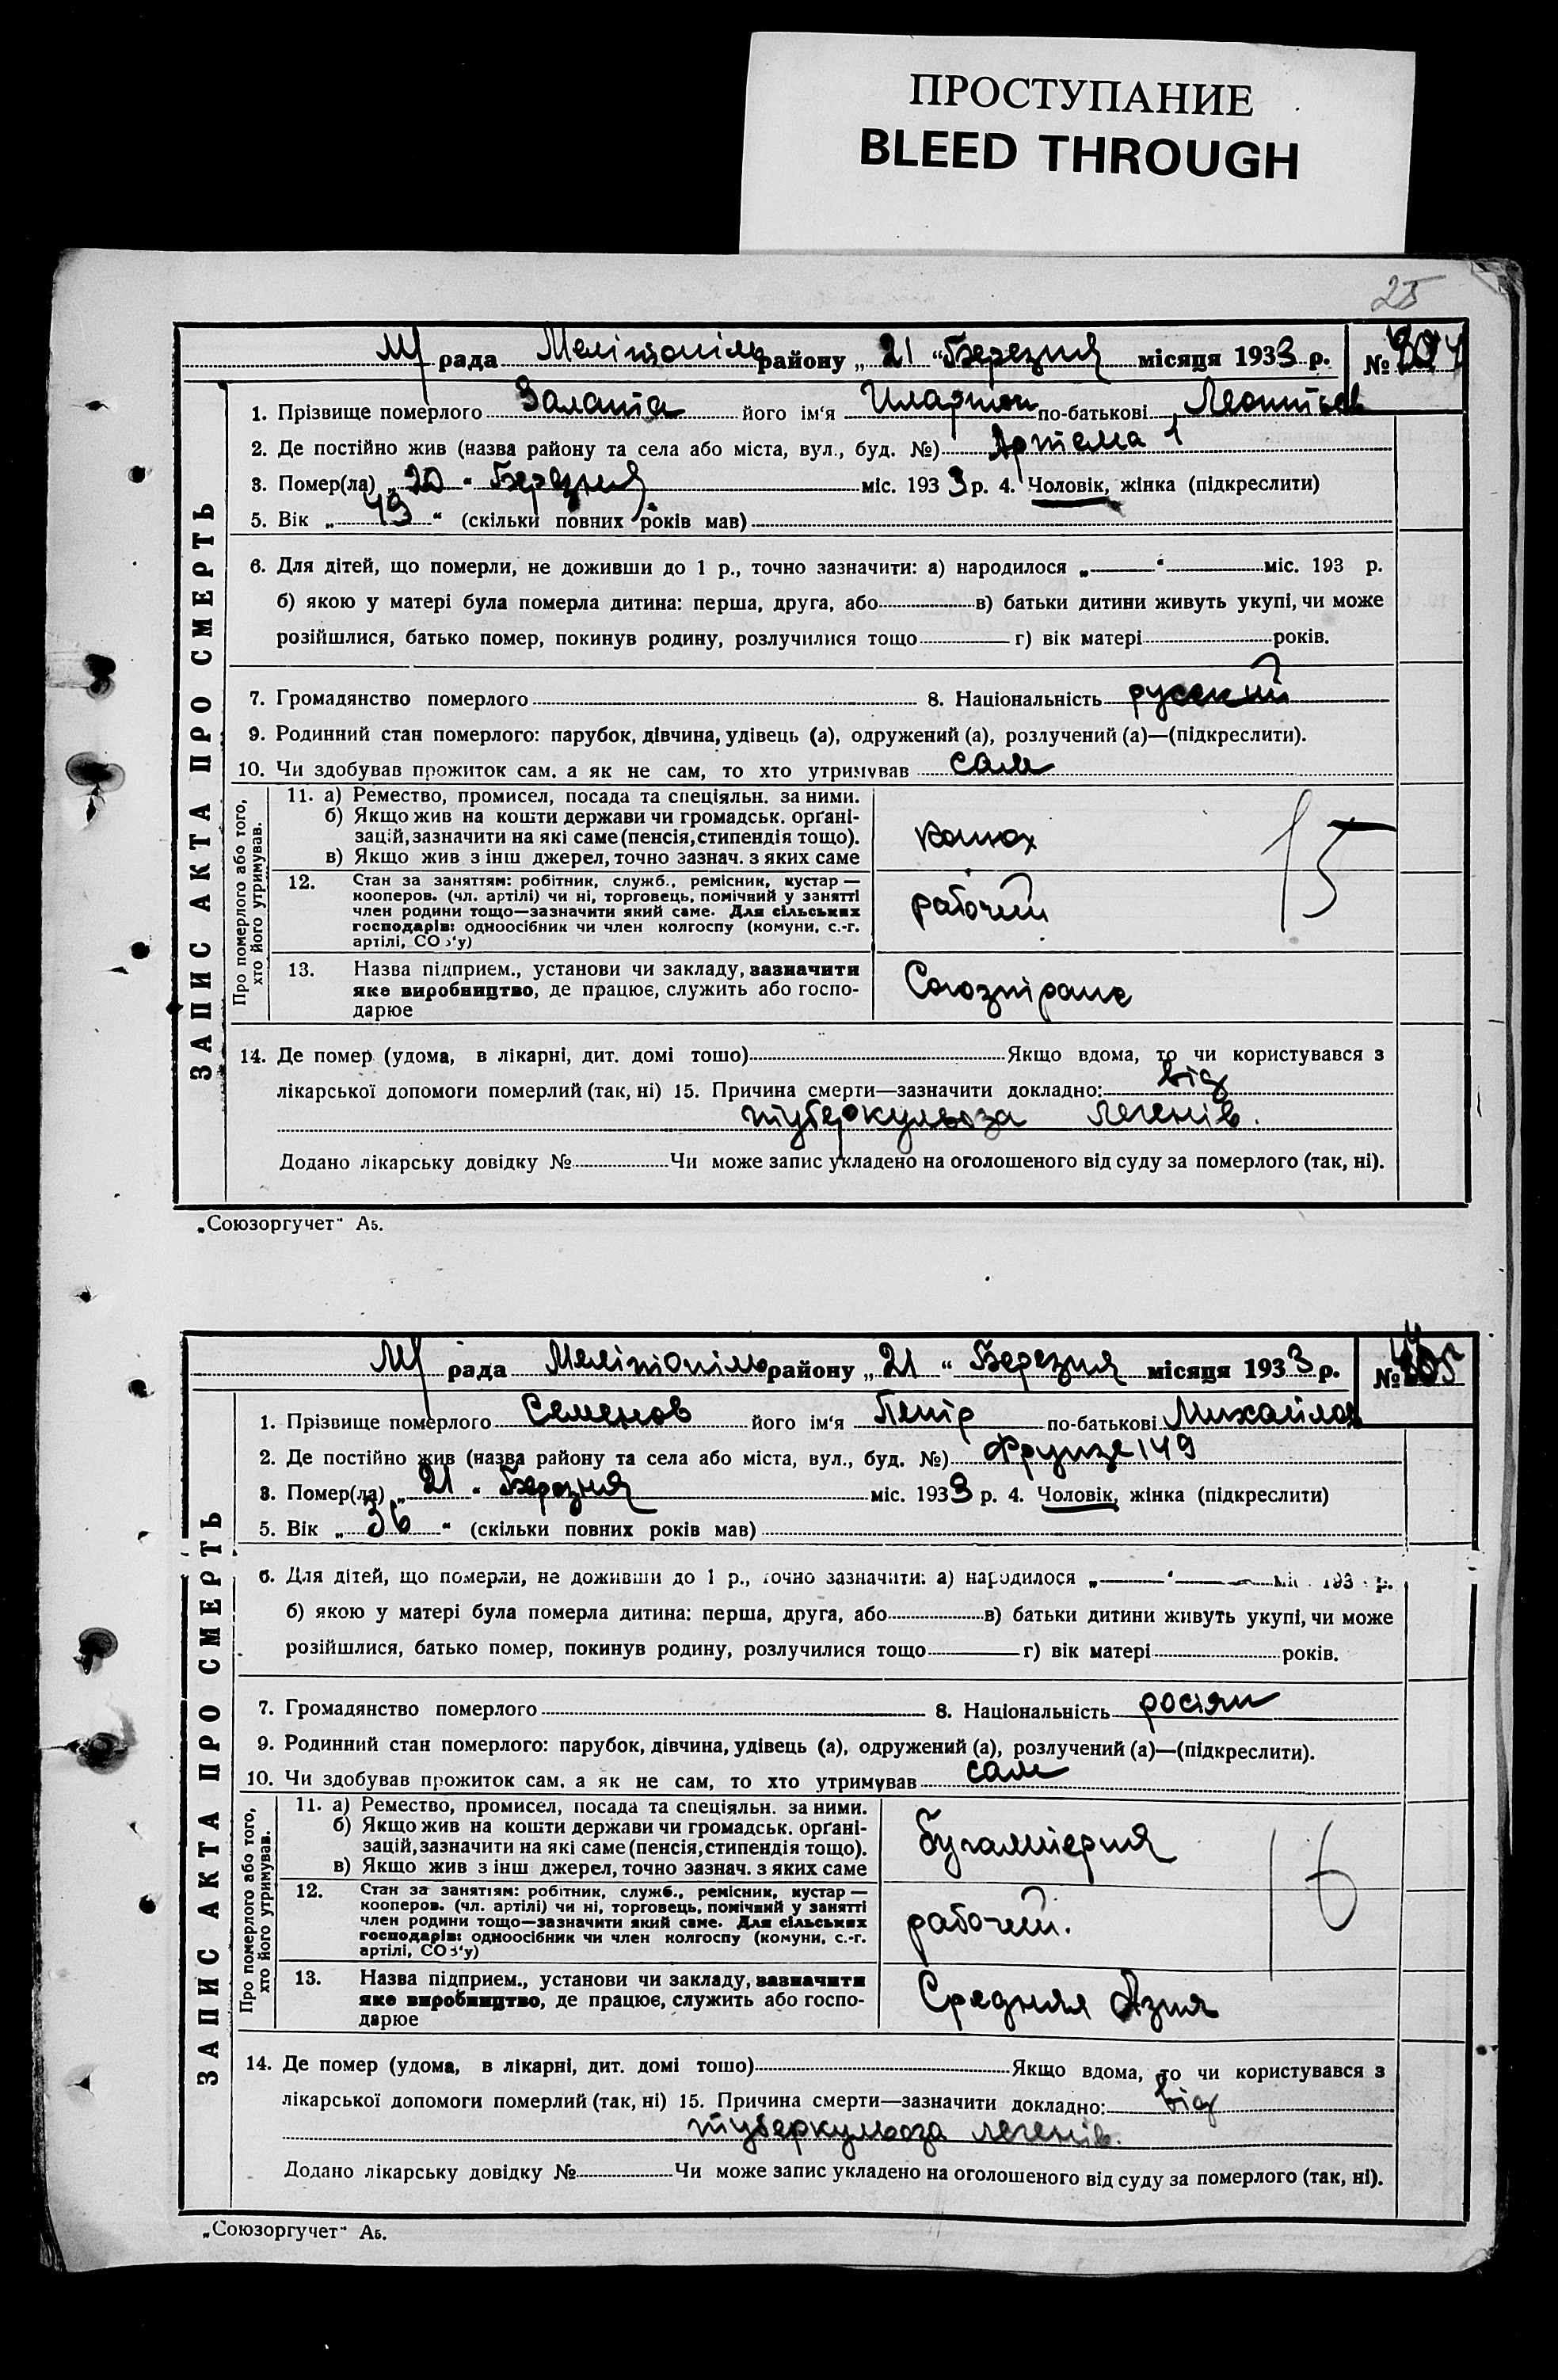 ПРОСТУПАНИЕ
BLEED THROUGH
25
М/ рада Мелітопіль району „ 21 “ Березня місяця 1933 р. №
1. Прізвище померлого Залата його ім‘я Иларион по-батькові Леонтьев
2. Де постійно жив (назва району та села або міста, вул., буд. №) Артема 1
3. Помер(ла) „ 20 “ Березня міс. 1933 р. 4. Чоловік, жінка (підкреслити)
5. Вік „ 49 “ (скільки повних років мав)
6. Для дітей, що померли, не доживши до 1 р., точно зазначити: а) народилося „ “ міс. 193 р.
б) якою у матері була померла дитина: перша, друга, або в) батьки дитини живуть укупі, чи може
розійшлися, батько помер, покинув родину, розлучилися тощо г) вік матері років.
7. Громадянство померлого 8. Національність русский
9. Родинний стан померлого: парубок, дівчина, удівець (а), одружений (а), розлучений (а)—(підкреслити).
10. Чи здобував прожиток сам, а як не сам, то хто утримував сам
ЗАПИС АКТА ПРО СМЕРТЬ
Про померлого або того,
хто його утримував.
11. а) Ремество, промисел, посада та спеціяльн. за ними.
б) Якщо жив на кошти держави чи громадськ. орґані-
зацій, зазначити на які саме (пенсія, стипендія тощо).
в) Якщо жив з інш джерел, точно зазнач. з яких саме
конюх
15
12. Стан за заняттям: робітник, служб., ремісник, кустар —
кооперов. (чл. артілі) чи ні, торговець, помічний у занятті
член родини тощо—зазначити який саме. Для сільських
господарів: одноосібник чи член колгоспу (комуни, с.-г.
артілі, СОЗ‘у)
рабочий
13. Назва підприєм., установи чи закладу, зазначити
яке виробництво, де працює, служить або госпо-
дарює
Союзтранс
14. Де помер (удома, в лікарні, дит. домі тошо) Якщо вдома, то чи користувався з
лікарської допомоги померлий (так, ні) 15. Причина смерти—зазначити докладно: від
туберкульоза легенів.
Додано лікарську довідку № Чи може запис укладено на оголошеного від суду за померлого (так, ні).
„Союзоргучет“ А5.
М/ рада Мелітопіль району „ 21 “ Березня місяця 1933 р. №
1. Прізвище померлого Семенов його ім‘я Петір по-батькові Михайлов
2. Де постійно жив (назва району та села або міста, вул., буд. №) Фрунзе 149
3. Помер(ла) „ 21 “ Березня міс. 1933 р. 4. Чоловік, жінка (підкреслити)
5. Вік „ 36 “ (скільки повних років мав)
6. Для дітей, що померли, не доживши до 1 р., точно зазначити: а) народилося „ “ міс. 193 р.
б) якою у матері була померла дитина: перша, друга, або в) батьки дитини живуть укупі, чи може
розійшлися, батько помер, покинув родину, розлучилися тощо г) вік матері років.
7. Громадянство померлого 8. Національність росіян
9. Родинний стан померлого: парубок, дівчина, удівець (а), одружений (а), розлучений (а)—(підкреслити).
10. Чи здобував прожиток сам, а як не сам, то хто утримував сам
ЗАПИС АКТА ПРО СМЕРТЬ
Про померлого або того,
хто його утримував.
11. а) Ремество, промисел, посада та спеціяльн. за ними.
б) Якщо жив на кошти держави чи громадськ. орґані-
зацій, зазначити на які саме (пенсія, стипендія тощо).
в) Якщо жив з інш джерел, точно зазнач. з яких саме
бугалтерия
16
12. Стан за заняттям: робітник, служб., ремісник, кустар —
кооперов. (чл. артілі) чи ні, торговець, помічний у занятті
член родини тощо—зазначити який саме. Для сільських
господарів: одноосібник чи член колгоспу (комуни, с.-г.
артілі, СОЗ‘у)
рабочий.
13. Назва підприєм., установи чи закладу, зазначити
яке виробництво, де працює, служить або госпо-
дарює
Средняя Азия
14. Де помер (удома, в лікарні, дит. домі тошо) Якщо вдома, то чи користувався з
лікарської допомоги померлий (так, ні) 15. Причина смерти—зазначити докладно: від
туберкульоза легенів.
Додано лікарську довідку № Чи може запис укладено на оголошеного від суду за померлого (так, ні).
„Союзоргучет“ А5.